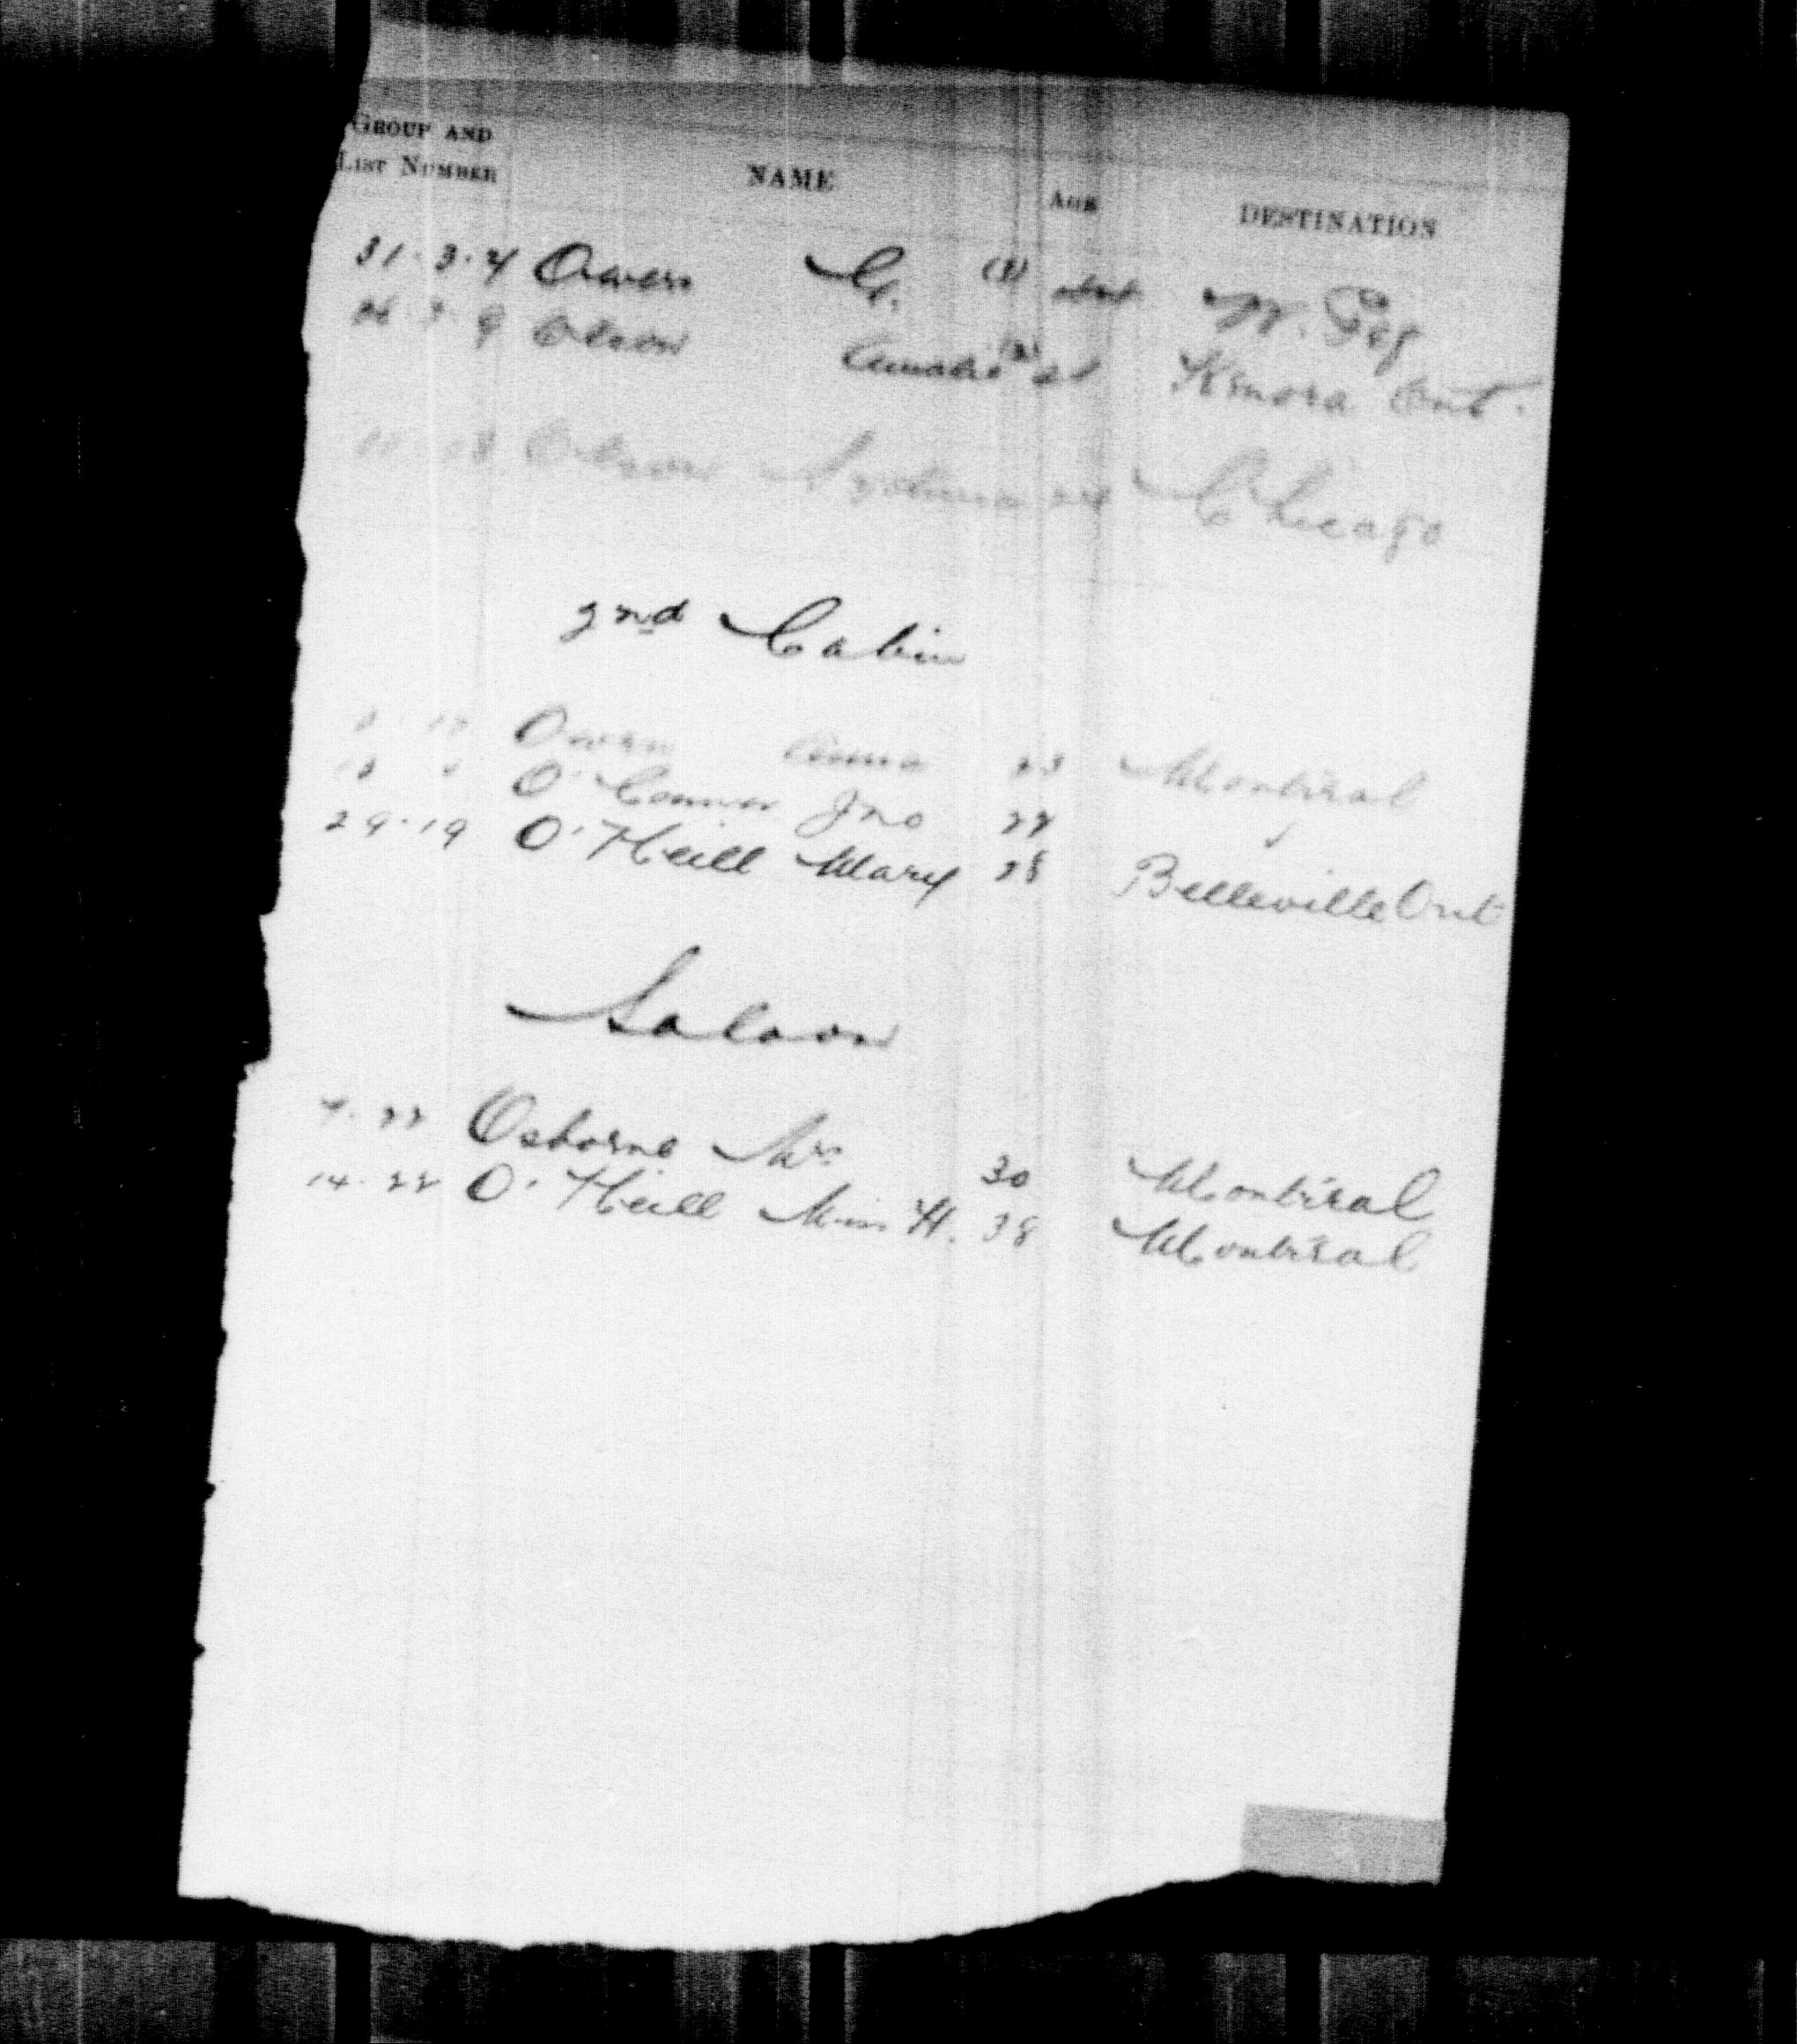 GROUP AND
LIST NUMBER NAME AGE DESTINATION
31.3.4 Owen G.
Olson Kenora Ont.
Olson Chicago
2nd Cabin
Owen Anna 23 Montreal
O'Connor Jno 22 "
29.19 O'Neill Mary 28 Belleville Ont
Saloon
4.22 Osborne Mr 30 Montreal
14.22 O'Neill Miss H. 38 Montreal